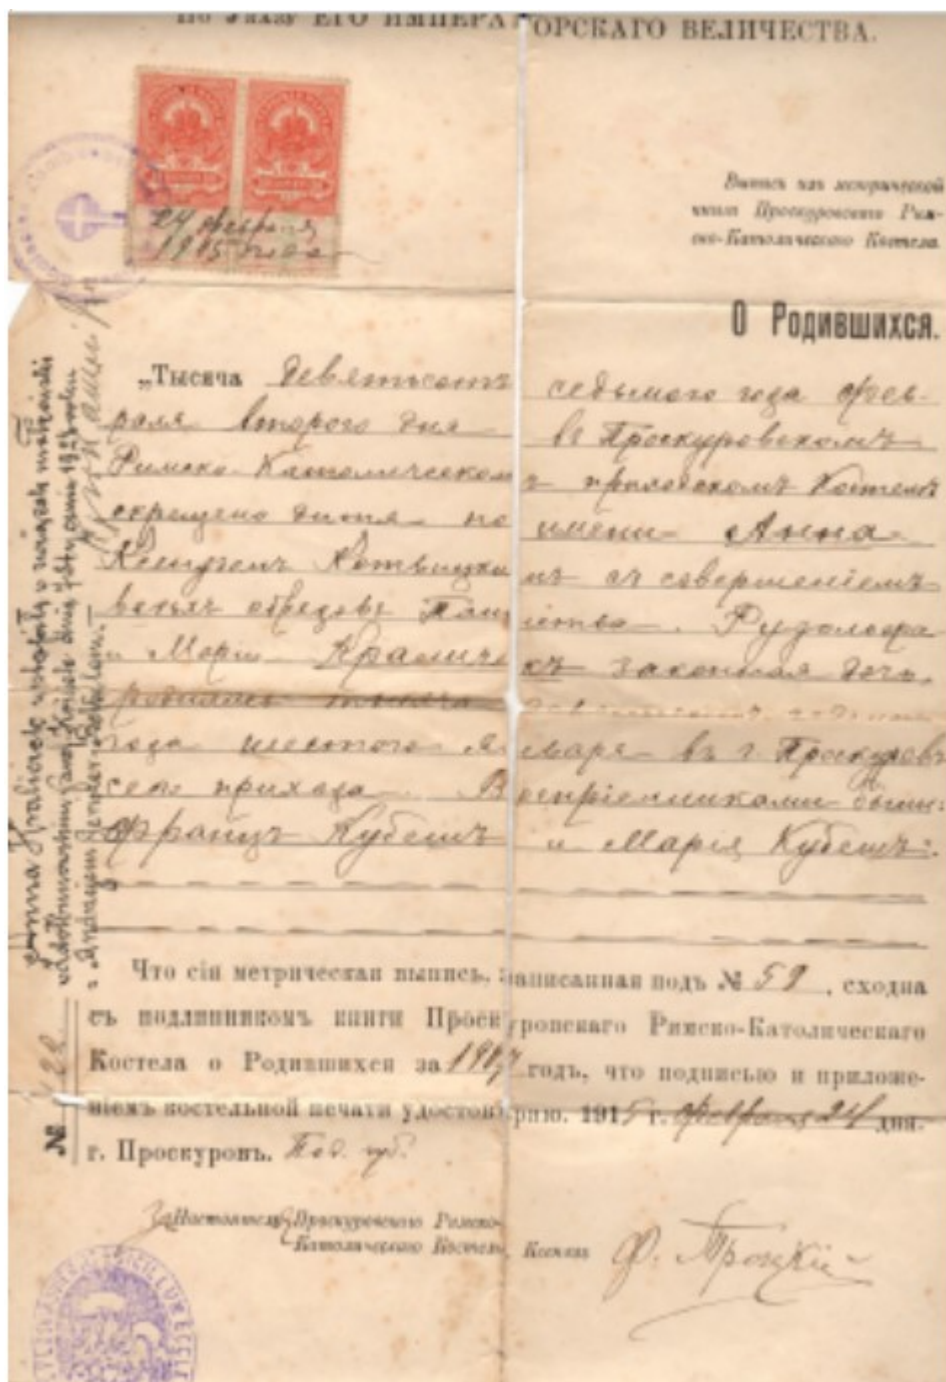 По Указу ЕГО ИМПЕРАТОРСКАГО ВЕЛИЧЕСТВА.
24 февраля
1915 года
Выпись изъ метрической
книги Проскуровскаго Рим-
ско-Католическаго Костела.
О Родившихся.
„Тысяча девятьсотъ седьмого года фев-
раля второго дня въ Проскуровскомъ
Римско-Католическомъ приходскомъ Костелѣ
окрещено дитя по имени Анна
Ксендзомъ Котвицкимъ съ совершеніемъ
всѣхъ обрядовъ Таинства. Рудольфа
и Маріи Краличекъ законная дочь,
родилась тысяча
года шестого Января въ г. Проскуровѣ
сего прихода. Воспріемниками были:
Францъ Кубешъ и Марія Кубешъ.
Что сія метрическая выпись, записанная подъ № 59, сходна
съ подлинникомъ книги Проскуровскаго Римско-Католическаго
Костела о Родившихся за 1907 годъ, что подписью и приложе-
ніемъ костельной печати удостовѣряю. 1915 г. февраля 24 дня.
г. Проскуровъ. Под. губ.
За Настоятеля Проскуровскаго Римско-
Католическаго Костела, Ксендзъ Ф. Троцкій
№ 122
Anna Kraliczek wstąpiła w związek małżeński